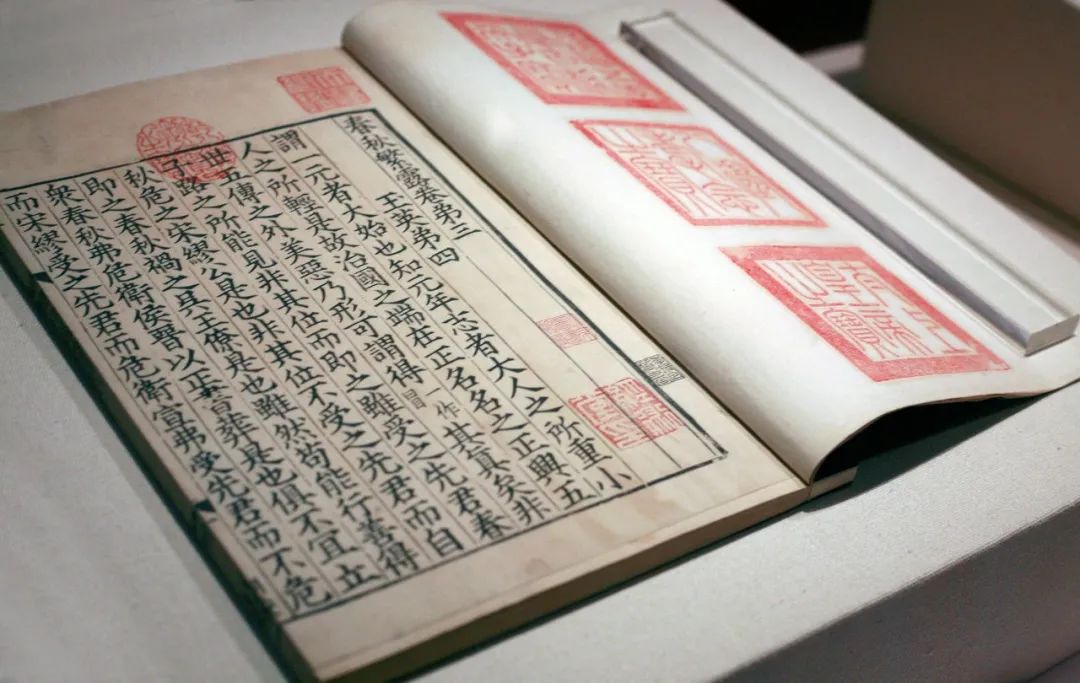 春秋繁露卷第三
玉英第四
謂一元者大始也知元年志者大人之所重小
人之所輕是故治國之端在正名名之正興五
世五傳之外美惡乃形可謂得一作冒其真矣非
子路之所能見非其位而即之雖受之先君春
秋危之宋繆公是也非其位不受之先君而自
即之春秋禍之吳王僚是也雖然苟能行善得
衆春秋弗危衛侯晉以正書葬是也俱不宜立
而宋繆受之先君而危衛宣弗受先君而不危